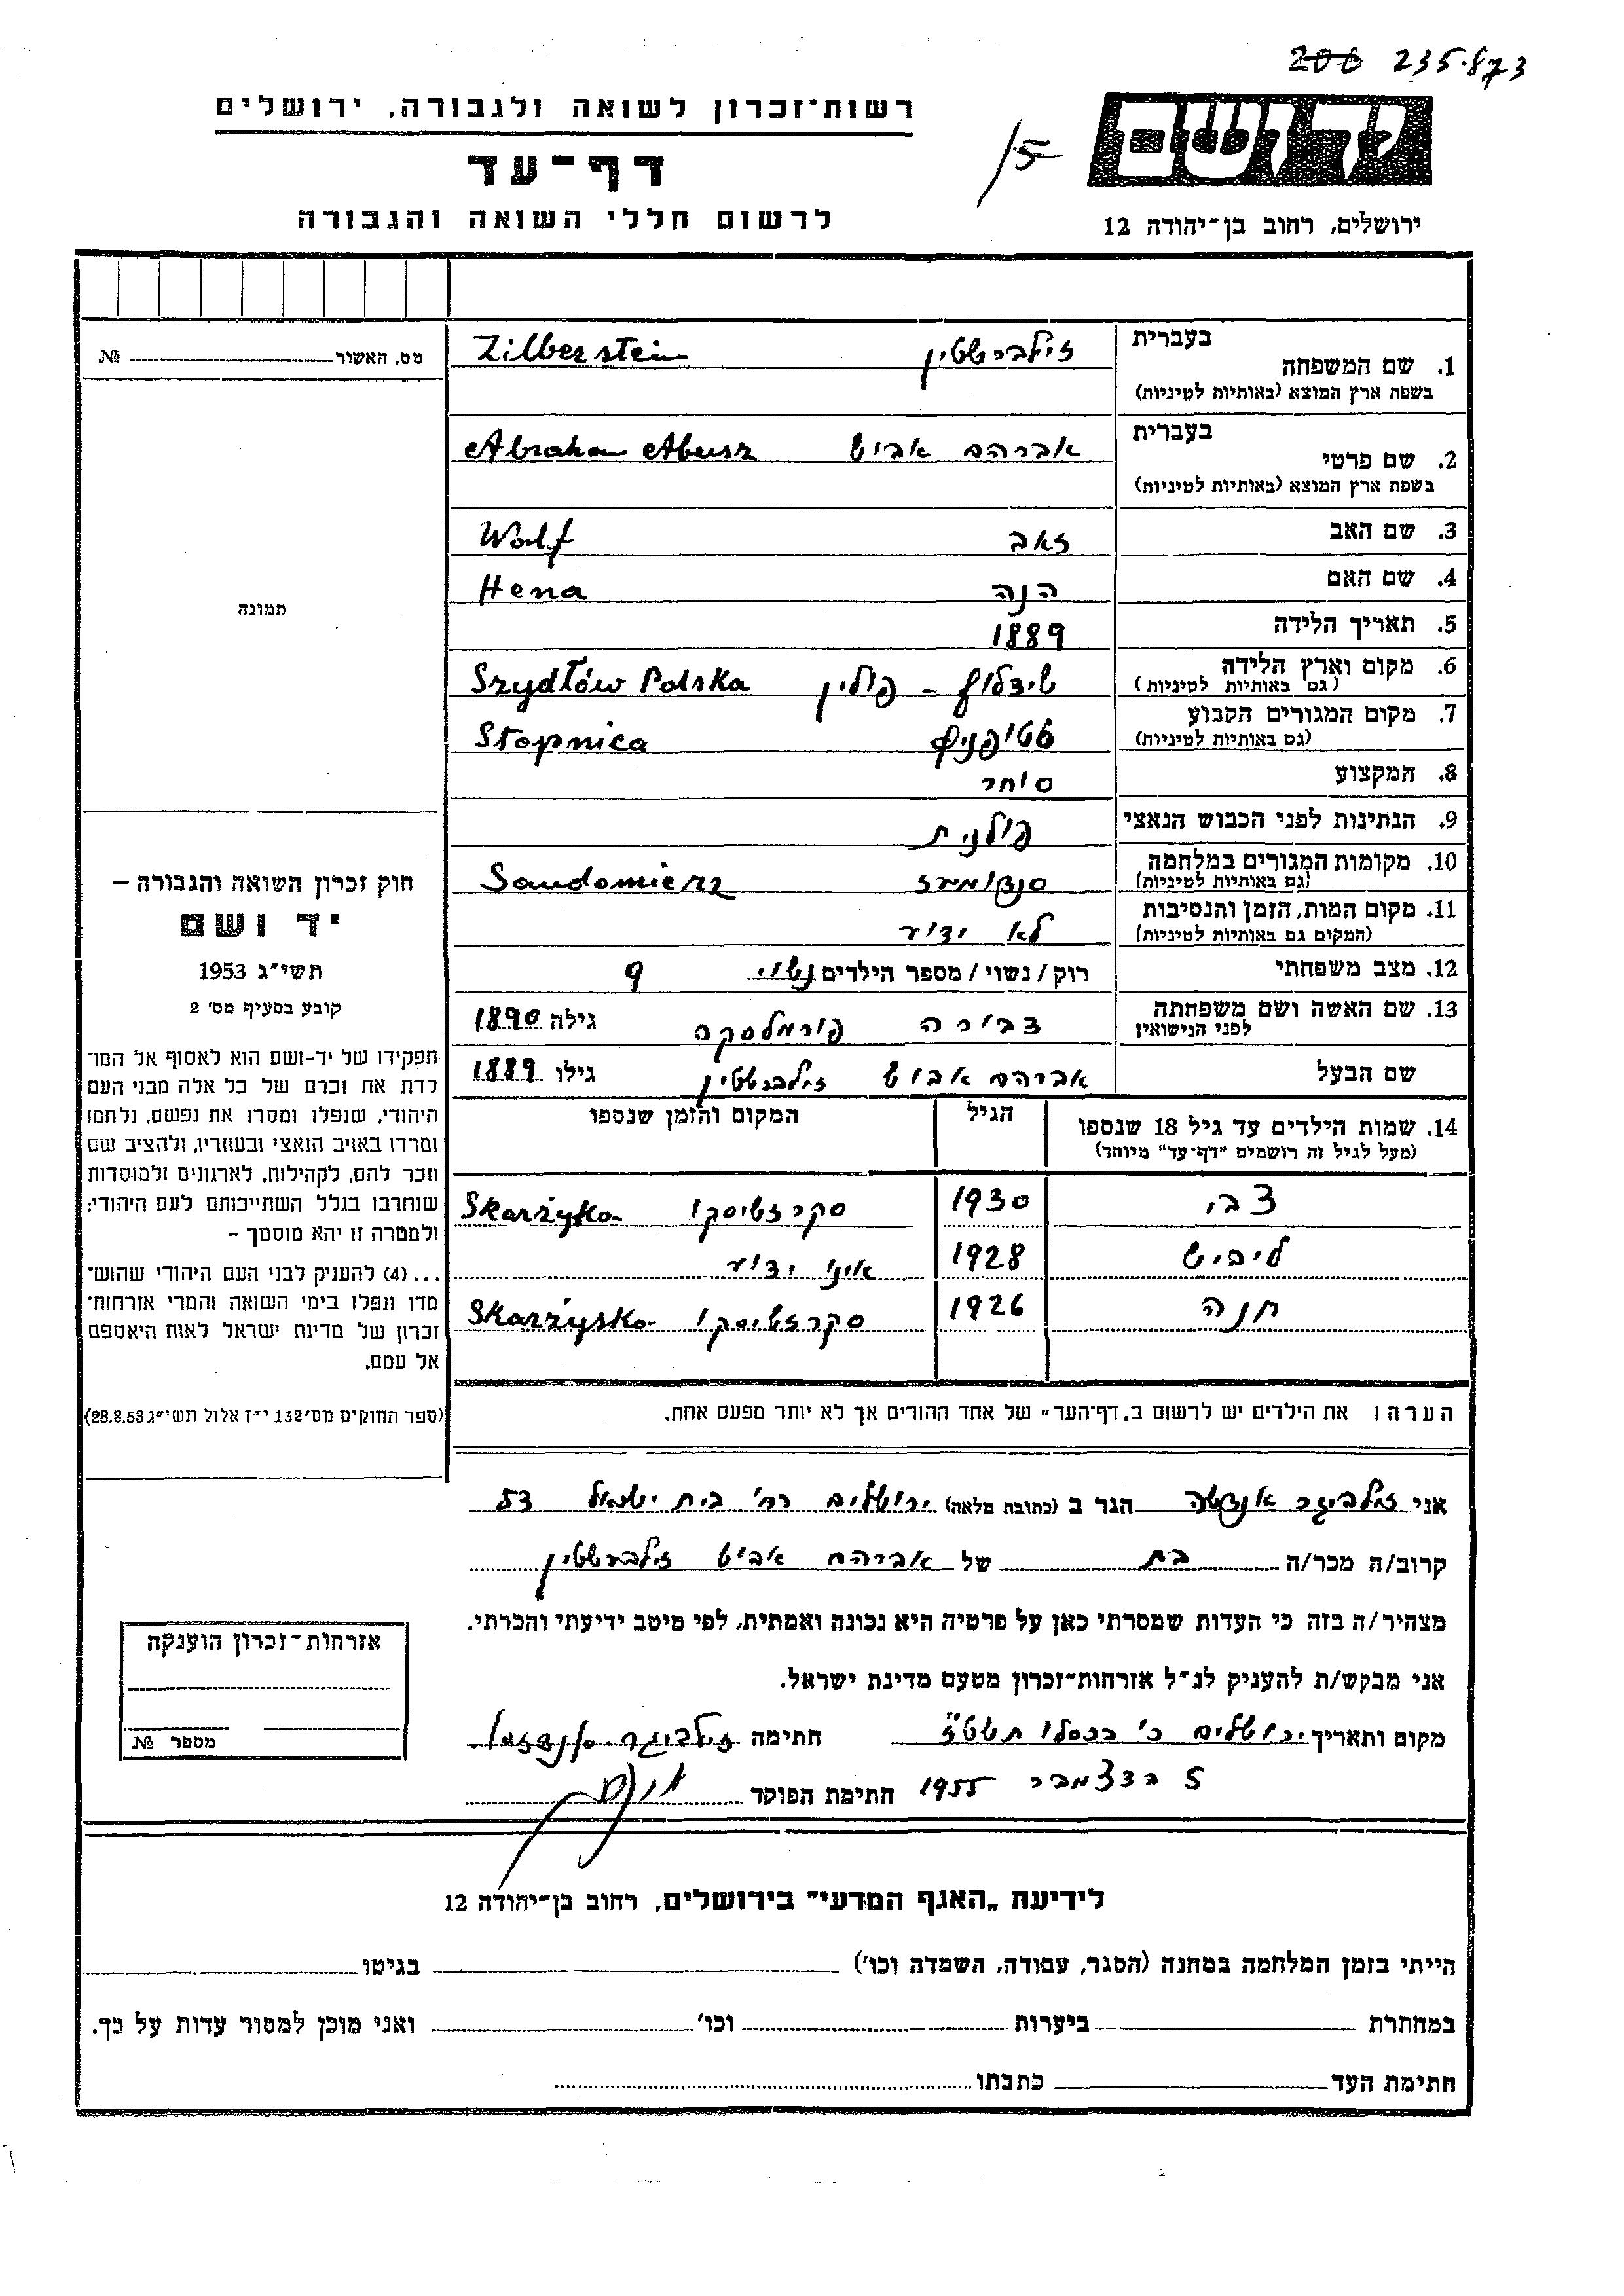 200 235.873
ידושם
15
רשות־זכרון לשואה ולגבורה, ירושלים
דף־עד
לרשום חללי השואה והגבורה
ירושלים, רחוב בן־יהודה 12
מס. האשור № 
תמונה
חוק זכרון השואה והגבורה —
יד ושם
תשי״ג 1953
קובע בסעיף מס׳ 2
תפקידו של יד-ושם הוא לאסוף אל המו־
לדת את זכרם של כל אלה מבני העם
היהודי, שנפלו ומסרו את נפשם, נלחמו
ומרדו באויב הנאצי ובעוזריו, ולהציב שם
וזכר להם, לקהילות, לארגונים ולמוסדות
שנחרבו בגלל השתייכותם לעם היהודי;
ולמטרה זו יהא מוסמך —
...(4) להעניק לבני העם היהודי שהוש־
מדו ונפלו בימי השואה והמרי אזרחות־
זכרון של מדינת ישראל לאות היאספם
אל עמם.
(ספר החוקים מס׳ 132 י״ז אלול תשי״ג 28.8.53)
בעברית
1. שם המשפחה זילברשטיין Zilberstein
בשפת ארץ המוצא (באותיות לטיניות)
בעברית
2. שם פרטי אברהם אביש Abraham Abusz
בשפת ארץ המוצא (באותיות לטיניות)
3. שם האב זאב Wolf
4. שם האם הנה Hena
5. תאריך הלידה 1889
6. מקום וארץ הלידה שידלוף - פולין Szydłów Polska
(גם באותיות לטיניות)
7. מקום המגורים הקבוע סטופניץ Stopnica
(גם באותיות לטיניות)
8. המקצוע סוחר
9. הנתינות לפני הכבוש הנאצי פולנית
10. מקומות המגורים במלחמה סנדומרז Sandomierz
(גם באותיות לטיניות)
11. מקום המות, הזמן והנסיבות לא ידוע
(המקום גם באותיות לטיניות)
12. מצב משפחתי רוק/נשוי/מספר הילדים נשוי 9
13. שם האשה ושם משפחתה דבורה פורמלסקה גילה 1890
לפני הנישואין
שם הבעל אברהם אביש זילברשטיין גילו 1889
14. שמות הילדים עד גיל 18 שנספו הגיל המקום והזמן שנספו
(מעל לגיל זה רושמים "דף־עד" מיוחד)
צבי 1930 סקרזטיסקו Skarżyko
ליביש 1928 אינו ידוע
חנה 1926 סקרזטיסקו Skarżysko
הערה: את הילדים יש לרשום ב„דף־העד״ של אחד ההורים אך לא יותר מפעם אחת.
אני זילביגר הגר ב (כתובת מלאה) ירושלים רח׳ בית ישראל 53
קרוב/ה מכר/ה בת של אברהם אביש זילברשטיין
מצהיר/ה בזה כי העדות שמסרתי כאן על פרטיה היא נכונה ואמתית, לפי מיטב ידיעתי והכרתי.
אני מבקש/ת להעניק לנ״ל אזרחות־זכרון מטעם מדינת ישראל.
מקום ותאריך ירושלים כ׳ בכסלו תשט״ז חתימה זילביגר
5 בדצמבר 1955 חתימת הפוקד
אזרחות־זכרון הוענקה
מספר №
לידיעת „האגף המדעי״ בירושלים, רחוב בן־יהודה 12
הייתי בזמן המלחמה במחנה (הסגר, עבודה, השמדה וכו׳) בגיטו
במחתרת ביערות וכו׳ ואני מוכן למסור עדות על כך.
חתימת העד כתבתו